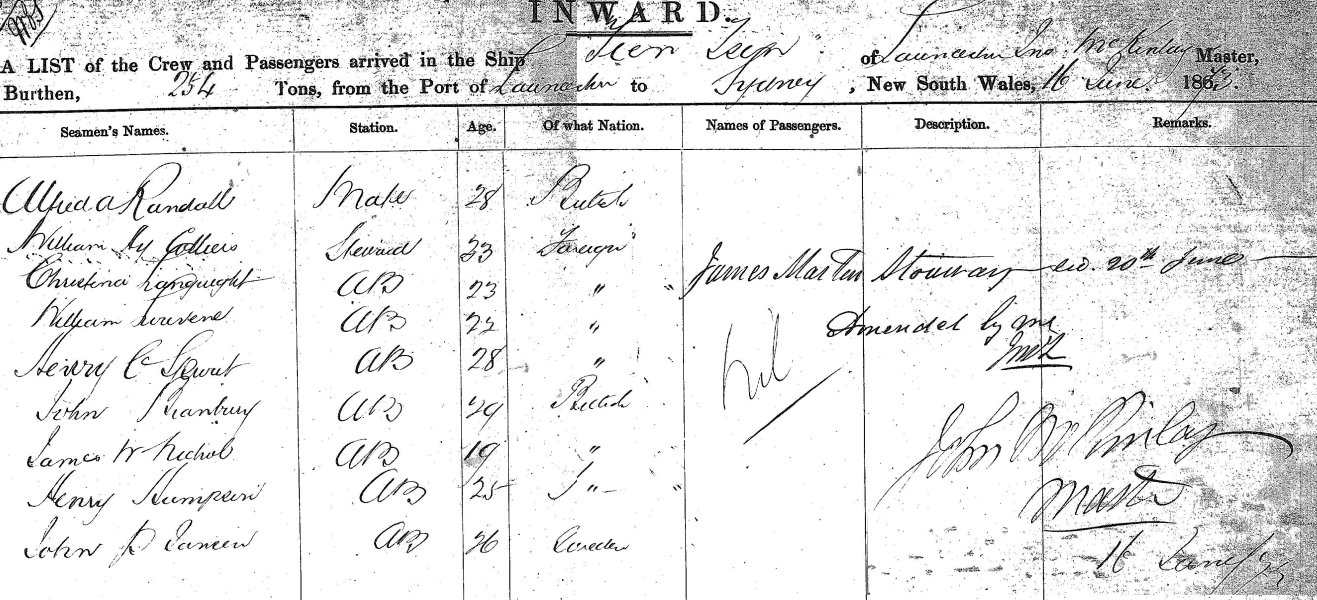 INWARD.
A LIST of the Crew and Passengers arrived in the Ship of Launceston Jno. McKinlay Master,
Burthen, 254 Tons, from the Port of Launceston to Sydney, New South Wales, 16 June 186
Seamen's Names. Station. Age. Of what Nation. Names of Passengers. Description. Remarks.
Alfred A Randall Mate 28 British
William Hy Colliers Steward 33 Foreign
Christina AB 23 " " James Martin Stowaway 20th June
William AB 22 " Amended by me
Henry C AB 28 " Nil JMcK
John AB 29 British
James W Nichol AB 19 " John McKinlay
Henry AB 25 " " Master
John P Jansen AB 26 Sweden 16 June/73